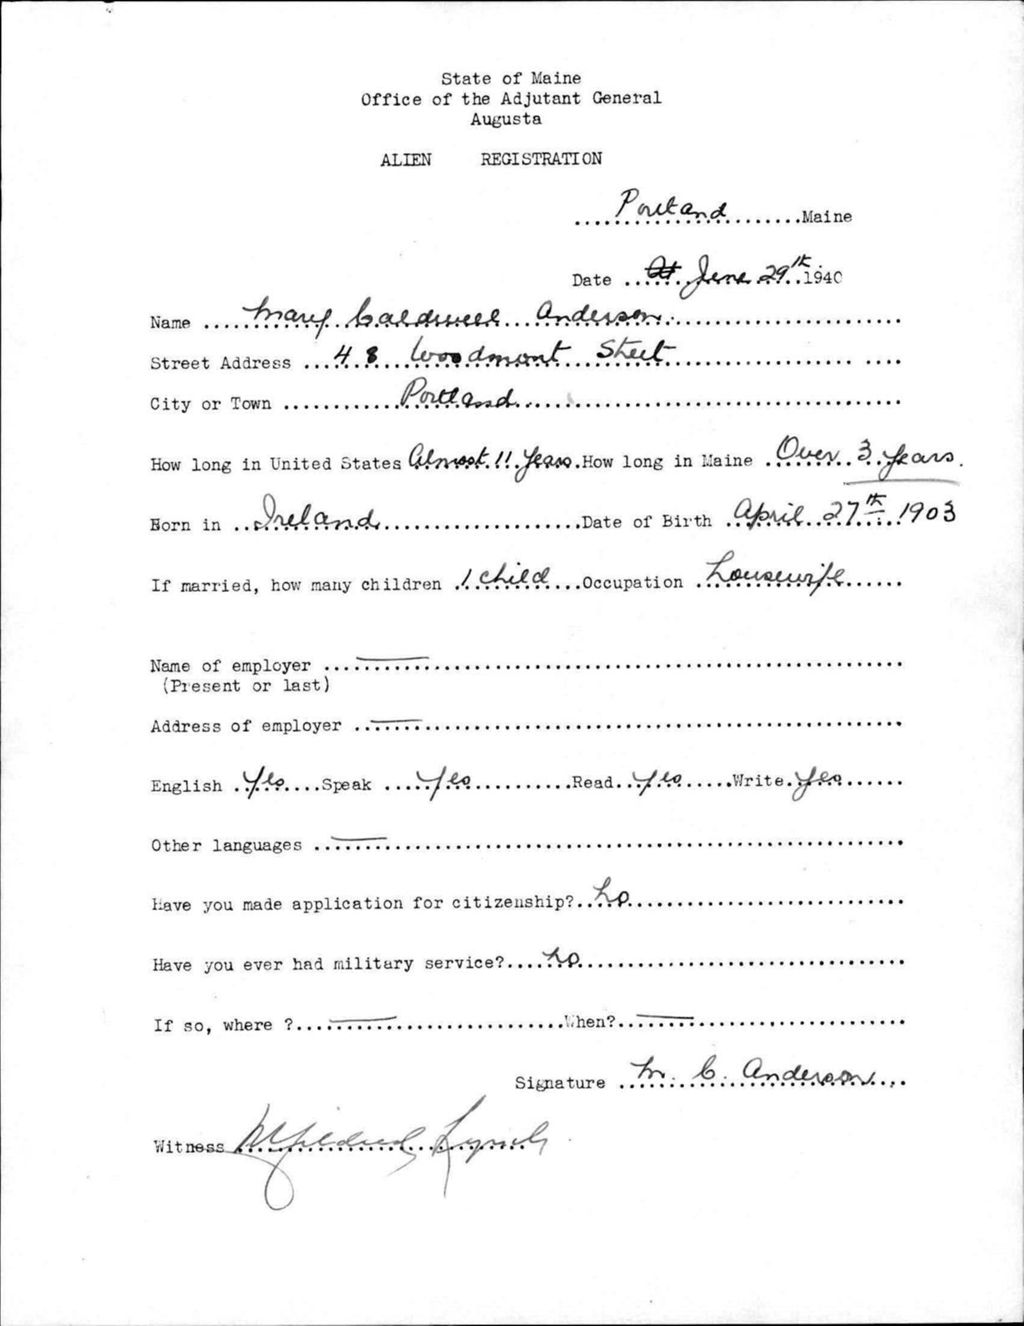 State of Maine
Office of the Adjutant General
Augusta
ALIEN REGISTRATION
Portland Maine
Date June 29th 1940
Name Mary Caldwell Anderson
Street Address 48 Woodmont Street
City or Town Portland
How long in United States Almost 11 years. How long in Maine Over 3 years.
Born in Ireland Date of Birth April 27th 1903
If married, how many children 1 child Occupation housewife
Name of employer
(Present or last)
Address of employer
English Yes Speak Yes Read Yes Write Yes
Other languages
Have you made application for citizenship? no
Have you ever had military service? no
If so, where ? When?
Signature M. C. Anderson
Witness Mildred Lynch